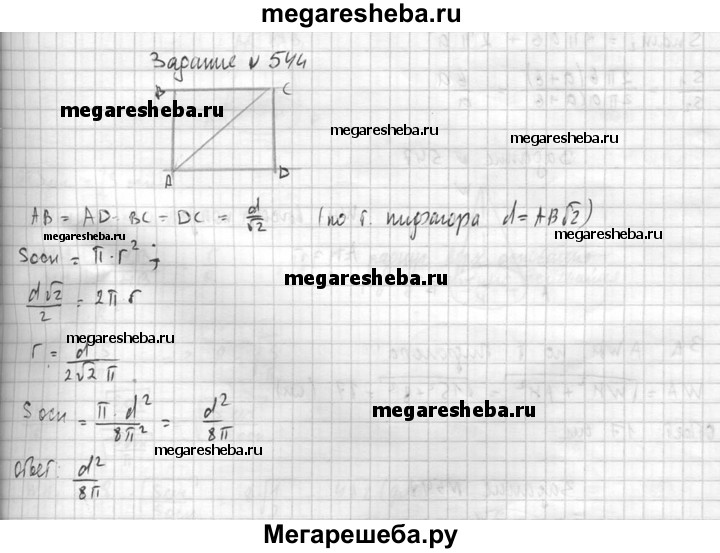 megaresheba.ru
Задание № 544
B C
megaresheba.ru
megaresheba.ru
megaresheba.ru
A D
AB = AD = BC = DC = d/√2 (по т. пифагора d = AB√2)
megaresheba.ru
megaresheba.ru
Sосн = π · r² ;
megaresheba.ru
d√2/2 = 2π r
megaresheba.ru
r = d/2√2 π
Sосн = π · d²/8π² = d²/8π
megaresheba.ru
megaresheba.ru
Ответ: d²/8π
Мегарешеба.ру